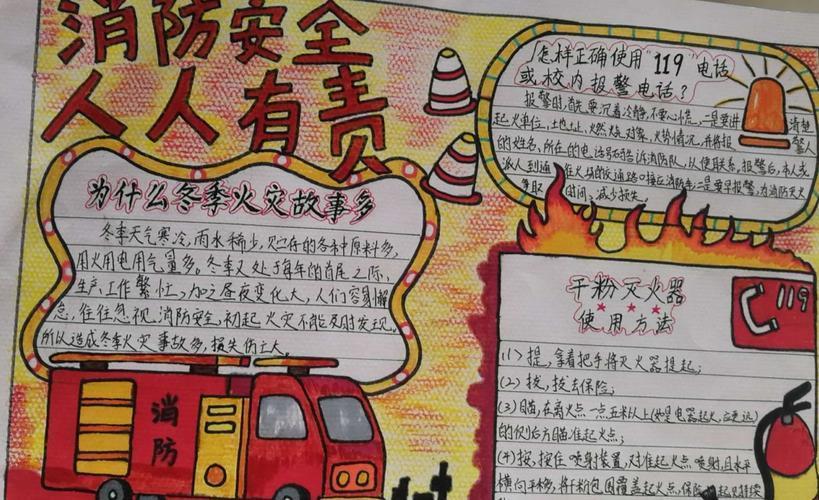 消防安全
人人有责
为什么冬季火灾故事多
冬季天气寒冷,雨水稀少,贮存的各种原料多,
用火用电用气量多。冬季又处于每年的首尾之际,
生产、工作繁忙,加之昼夜变化大,人们容易懈
怠,往往忽视消防安全,初起火灾不能及时发现,
所以造成冬季火灾事故多,损失伤亡大。
消防
怎样正确使用“119”电话
或校内报警电话?
报警时,首要沉着冷静,不要心慌,一是要讲清楚
起火单位,土地址,燃烧对象,火势情况,并将报警人
的姓名,所在的电话号码告诉消防队,以便联系,报警后,本人或
派人到通往火场的交通路口接应消防车;二是要早报警,为消防灭火
争取时间,减少损失。
干粉灭火器
使用方法
119
(1)提,拿着把手将灭火器提起;
(2)拔,拔去保险;
(3)瞄,在离火点一点五米以上(如是电器起火,应更远)
的侧后方瞄准起火点;
(4)按,按住喷射装置,对准起火点喷射,且水平
横向移动,将干粉包围覆盖起火点,保险起见持续